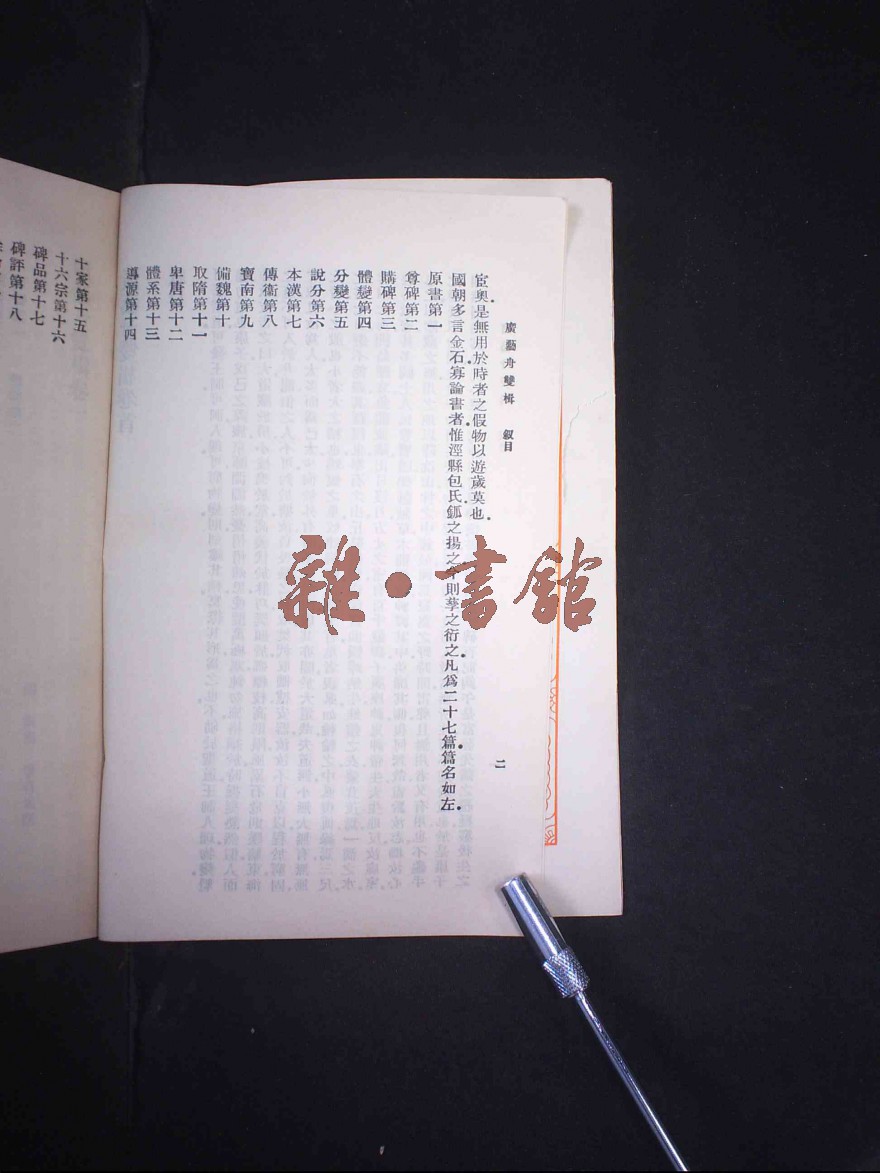 廣藝舟雙楫　叙目
二
宧奧。是無用於時者之假物以遊歲莫也。
國朝多言金石。寡論書者。惟涇縣包氏。鉱之揚之。今則孳之衍之。凡爲二十七篇。篇名如左。
原書第一
尊碑第二
購碑第三
體變第四
分變第五
說分第六
本漢第七
傳衞第八
寶南第九
備魏第十
取隋第十一
卑唐第十二
體系第十三
導源第十四
十家第十五
十六宗第十六
碑品第十七
碑評第十八
雜•書館